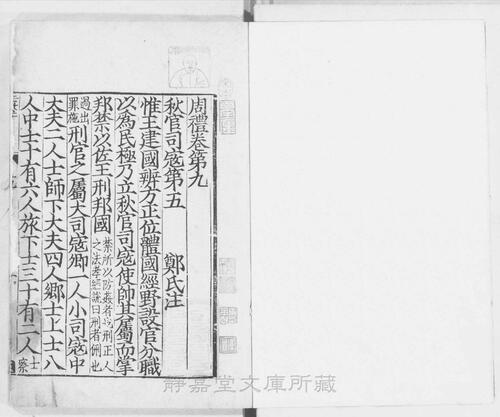 周禮卷第九
秋官司寇第五　鄭氏注
惟王建國辨方正位體國經野設官分職
以為民極乃立秋官司寇使帥其屬而掌
邦禁以佐王刑邦國禁所以防姦者也刑正人
之法孝經說曰刑者侀也
過出
罪施刑官之屬大司寇卿一人小司寇中
大夫二人士師下大夫四人鄉士上士八
人中士十有六人旅下士三十有二人士
察
靜嘉堂文庫所藏